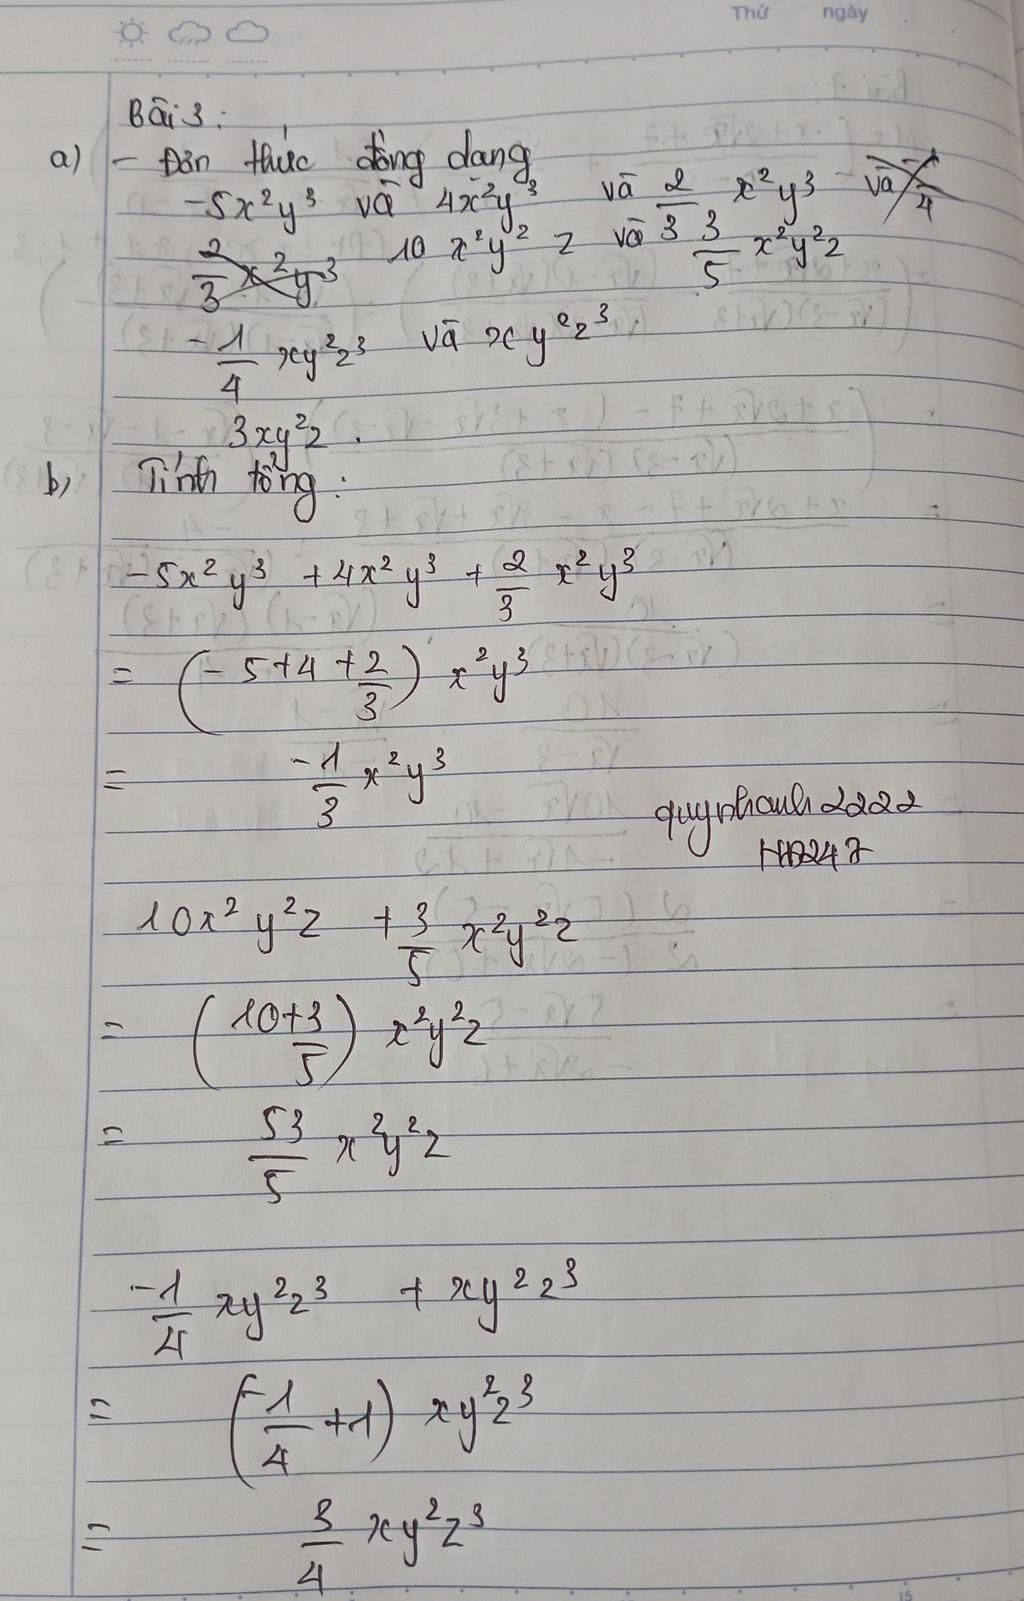 Thứ ngày
Bài 3:
a) - Đơn thức đồng dạng
-5x²y³ và 4x²y³ và 2/3 x²y³
10x²y²z và 3/5 x²y²z
-1/4 xy²z³ và xy²z³.
3xy²z.
b, Tính tổng:
-5x²y³ + 4x²y³ + 2/3 x²y³
= (-5+4+2/3) x²y³
= -1/3 x²y³
quynhanh2222
HD247
10x²y²z + 3/5 x²y²z
= (10+3/5) x²y²z
= 53/5 x²y²z
-1/4 xy²z³ + xy²z³
= (-1/4 + 1) xy²z³
= 3/4 xy²z³
15